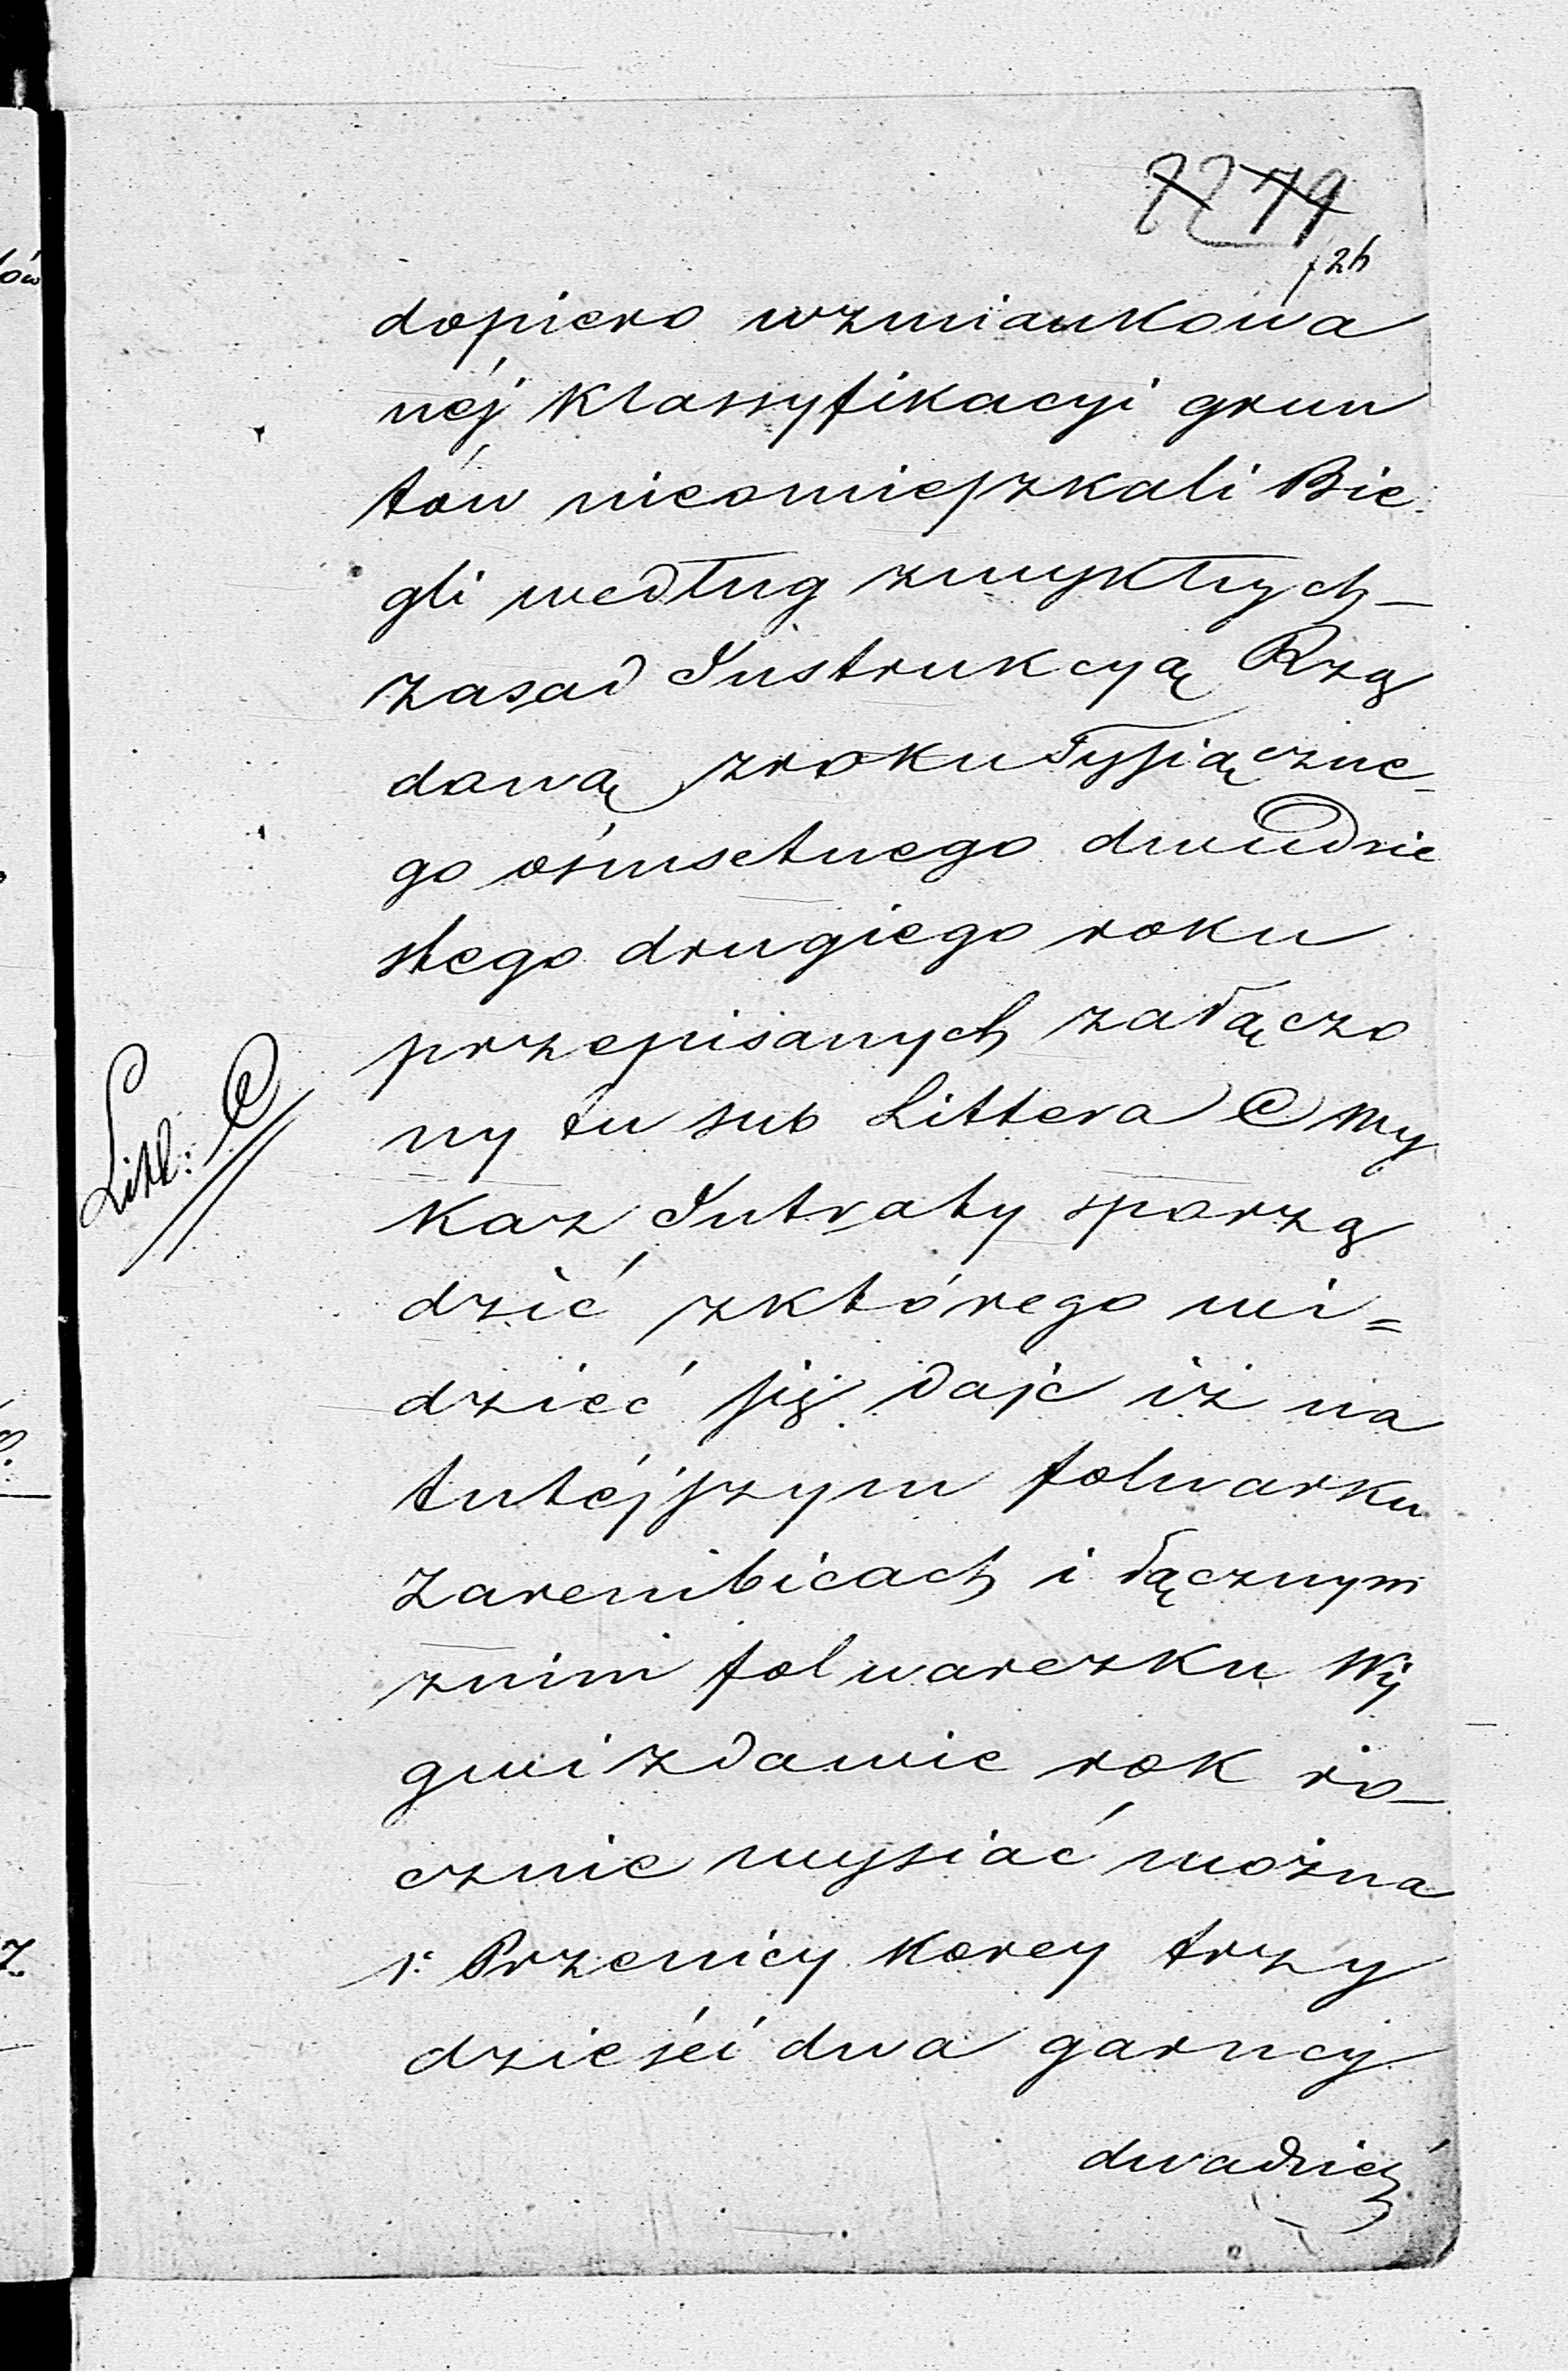 82 79
126
dopiero wzmiankowa
néj Klassyfikacyi grun
tów nieomieszkali Bie
gli według zwykłych
zasad Instrukcyą Rzą
dową z roku Tysiączne-
go ośmsetnego dwudzie
stego drugiego roku
przepisanych załączo
ny tu sub Littera C Wy
kaz Intraty sporzą
dzić z którego wi=
dzieć się daje iż na
tutéjszym folwarku
Zarembicach i łącznym
z nim folwarczku Wy
gwizdowie rok ro-
cznie wysiać można
1: Przenicy Korcy trzy
dzieści dwa garncy
dwadzieś
Litt: C